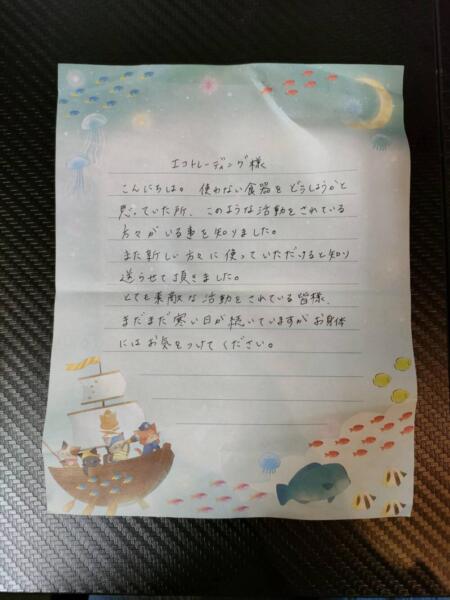 エコトレーディング様
こんにちは。使わない食器をどうしようかと
思っていた所、このような活動をされている
方々がいる事を知りました。
また新しい方々に使っていただけると知り
送らせて頂きました。
とても素敵な活動をされている皆様、
まだまだ寒い日が続いていますがお身体
にはお気をつけてください。